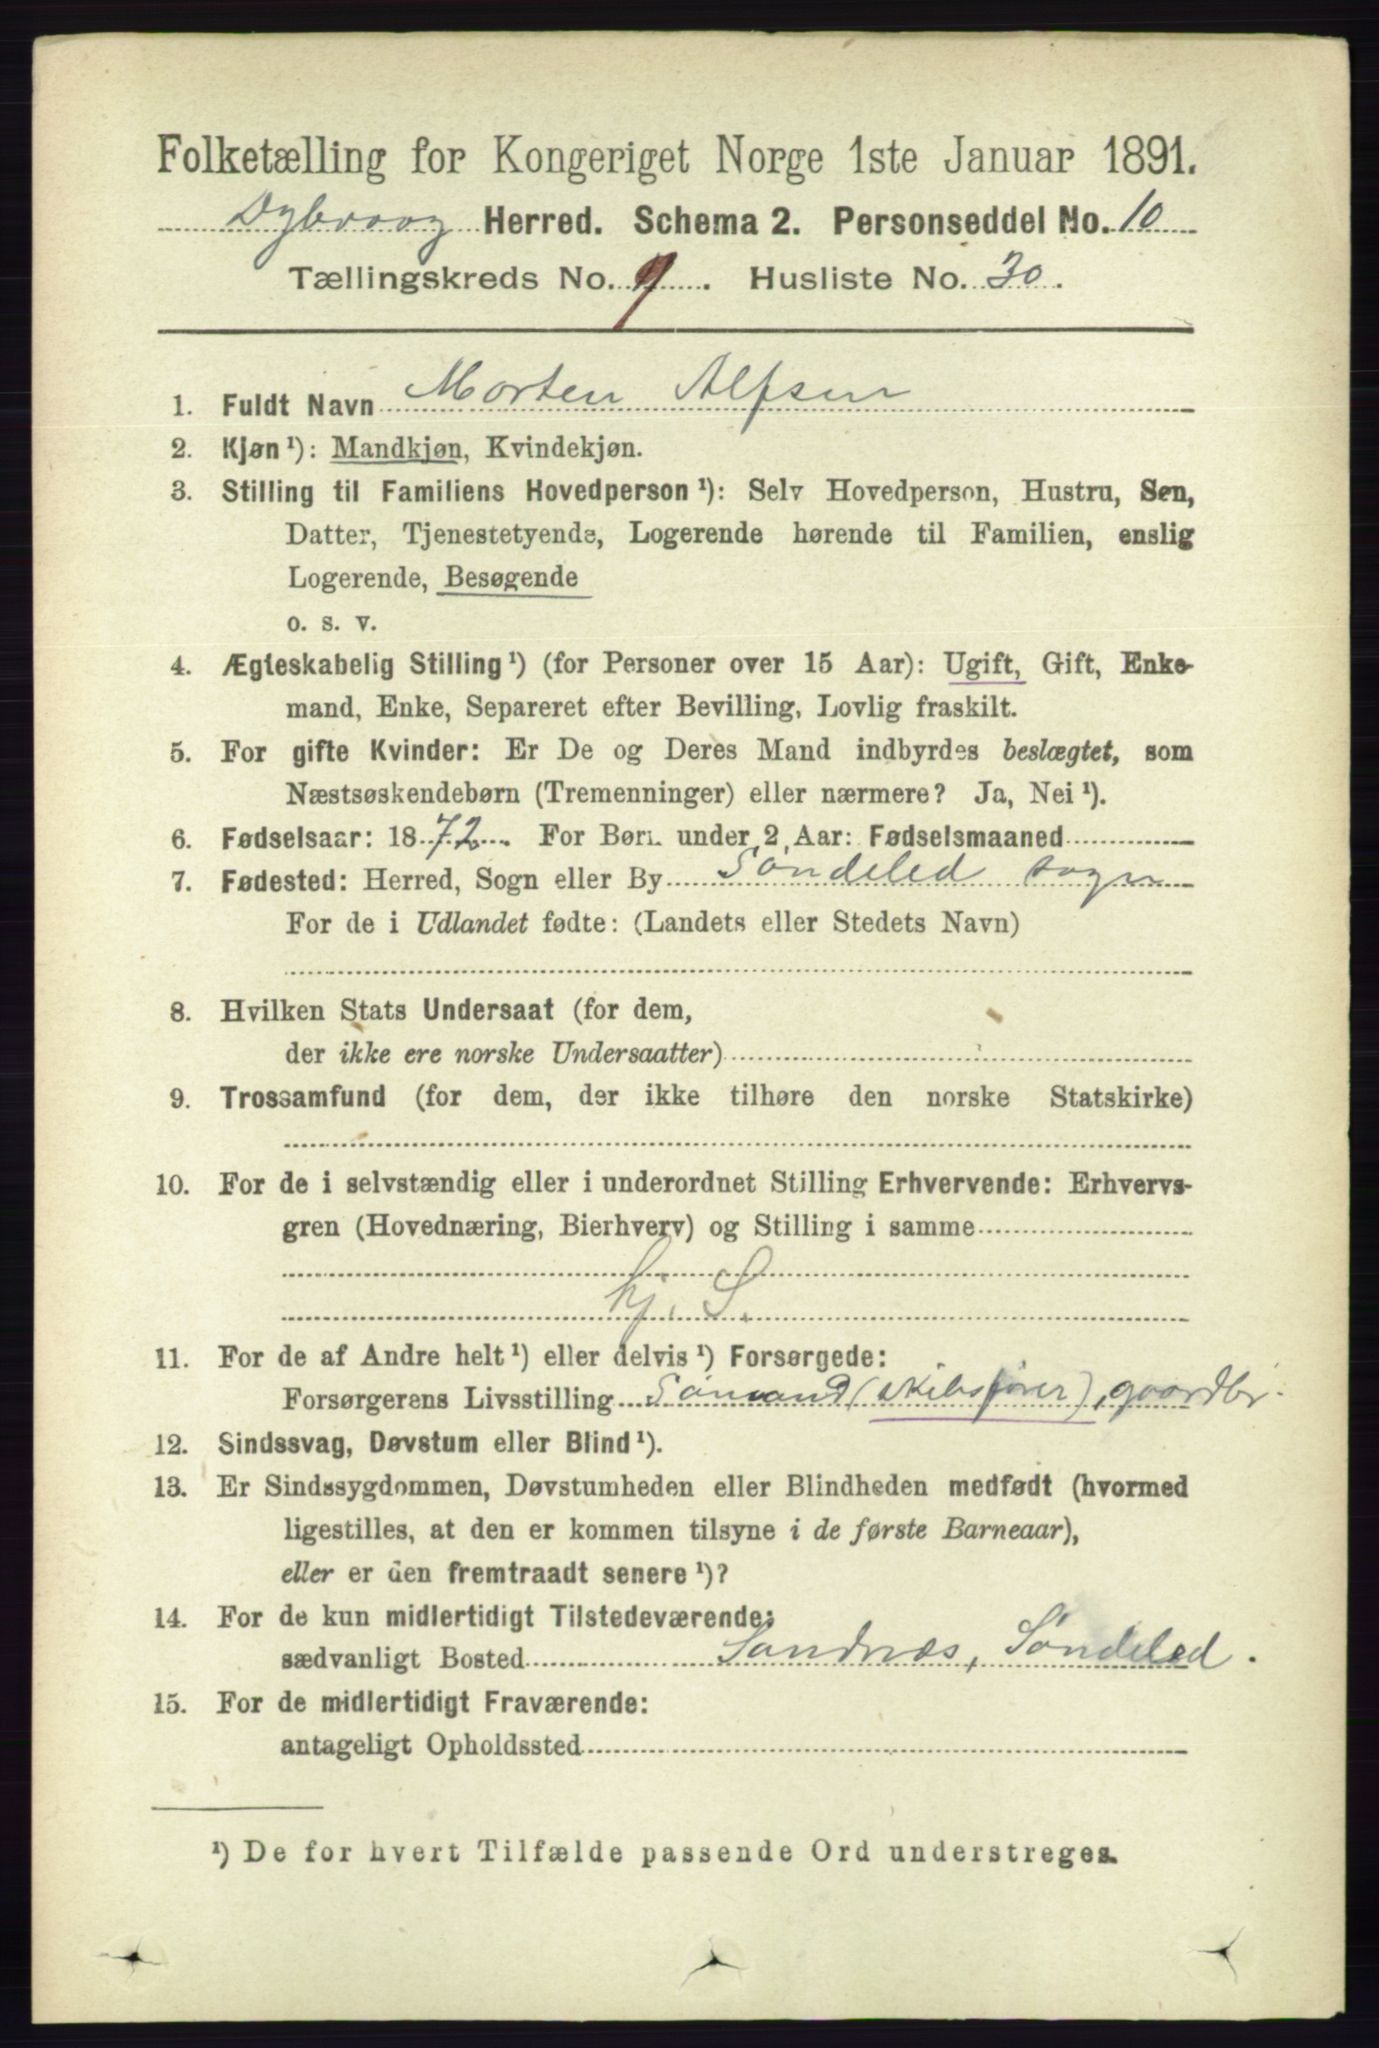 Folketælling for Kongeriget Norge 1ste Januar 1891.
Dybvaag Herred. Schema 2. Personseddel No. 10
Tællingskreds No. 9. Husliste No. 30.
1. Fuldt Navn Morten Alfsen
2. Kjøn ¹): Mandkjøn, Kvindekjøn.
3. Stilling til Familiens Hovedperson ¹): Selv Hovedperson, Hustru, Søn,
Datter, Tjenestetyende, Logerende hørende til Familien, enslig
Logerende, Besøgende
o. s. v.
4. Ægteskabelig Stilling ¹) (for Personer over 15 Aar): Ugift, Gift, Enke-
mand, Enke, Separeret efter Bevilling, Lovlig fraskilt.
5. For gifte Kvinder: Er De og Deres Mand indbyrdes beslægtet, som
Næstsøskendebørn (Tremenninger) eller nærmere? Ja, Nei ¹).
6. Fødselsaar: 1872. For Børn under 2 Aar: Fødselsmaaned
7. Fødested: Herred, Sogn eller By Søndeled sogn
For de i Udlandet fødte: (Landets eller Stedets Navn)
8. Hvilken Stats Undersaat (for dem,
der ikke ere norske Undersaatter)
9. Trossamfund (for dem, der ikke tilhøre den norske Statskirke)
10. For de i selvstændig eller i underordnet Stilling Erhvervende: Erhvervs-
gren (Hovednæring, Bierhverv) og Stilling i samme
hj. S.
11. For de af Andre helt ¹) eller delvis ¹) Forsørgede:
Forsørgerens Livsstilling Sømand (skibsfører), gaardbr.
12. Sindssvag, Døvstum eller Blind ¹).
13. Er Sindssygdommen, Døvstumheden eller Blindheden medfødt (hvormed
ligestilles, at den er kommen tilsyne i de første Barneaar),
eller er den fremtraadt senere ¹)?
14. For de kun midlertidigt Tilstedeværende:
sædvanligt Bosted Sandnæs, Søndeled.
15. For de midlertidigt Fraværende:
antageligt Opholdssted
¹) De for hvert Tilfælde passende Ord understreges.